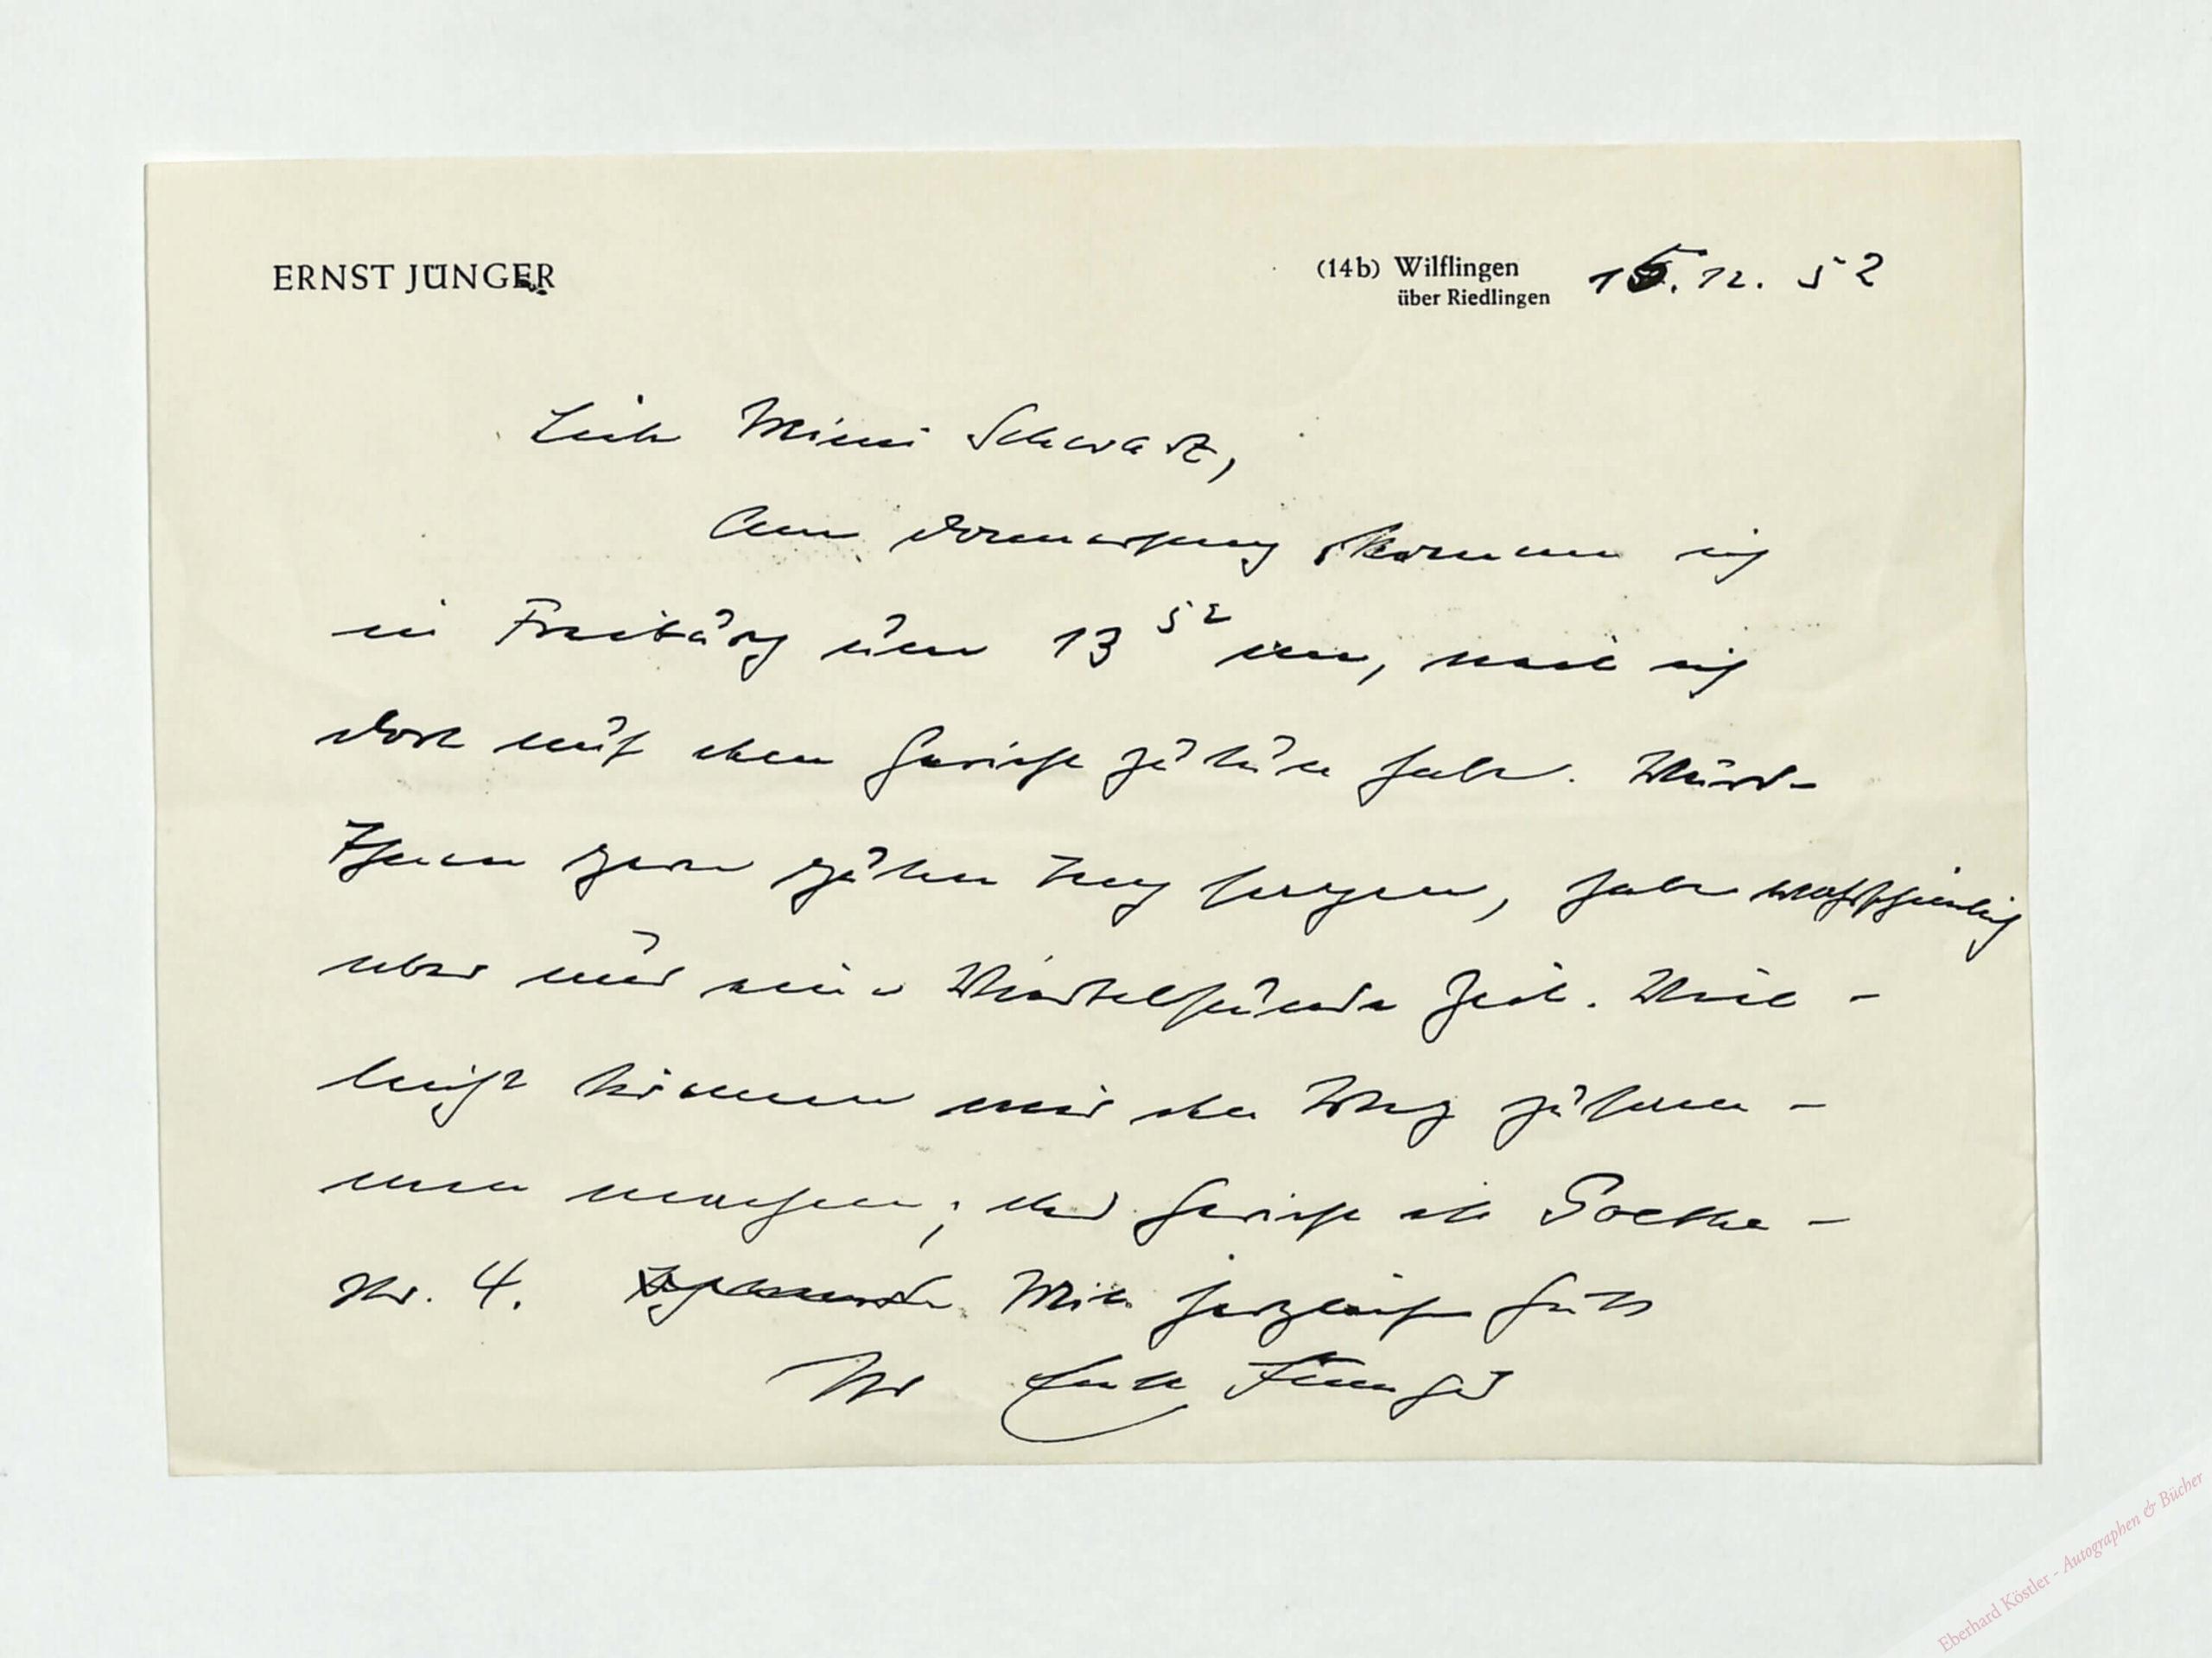 ERNST JÜNGER
(14b) Wilflingen
über Riedlingen
15. 12. 52
Liebe Mimi Schwarz,
Am Donnerstag komme ich
in Freiburg um 13 52 an, weil ich
dort auf dem Gericht zu tun habe. Würde
Ihnen gern guten Tag sagen, habe wahrscheinlich
aber nur eine Viertelstunde Zeit. Viel-
leicht können wir den Weg zusam-
men machen; das Gericht ist Goethe-
str. 4. Mit herzlichem Gruß
Ihr Ernst Jünger
Eberhard Köstler - Autographen & Bücher